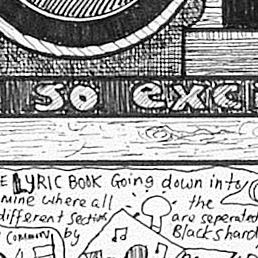 so exc
E LYRIC BOOK Going down into
mine where all the
different section are seperated
by Blackshard
common